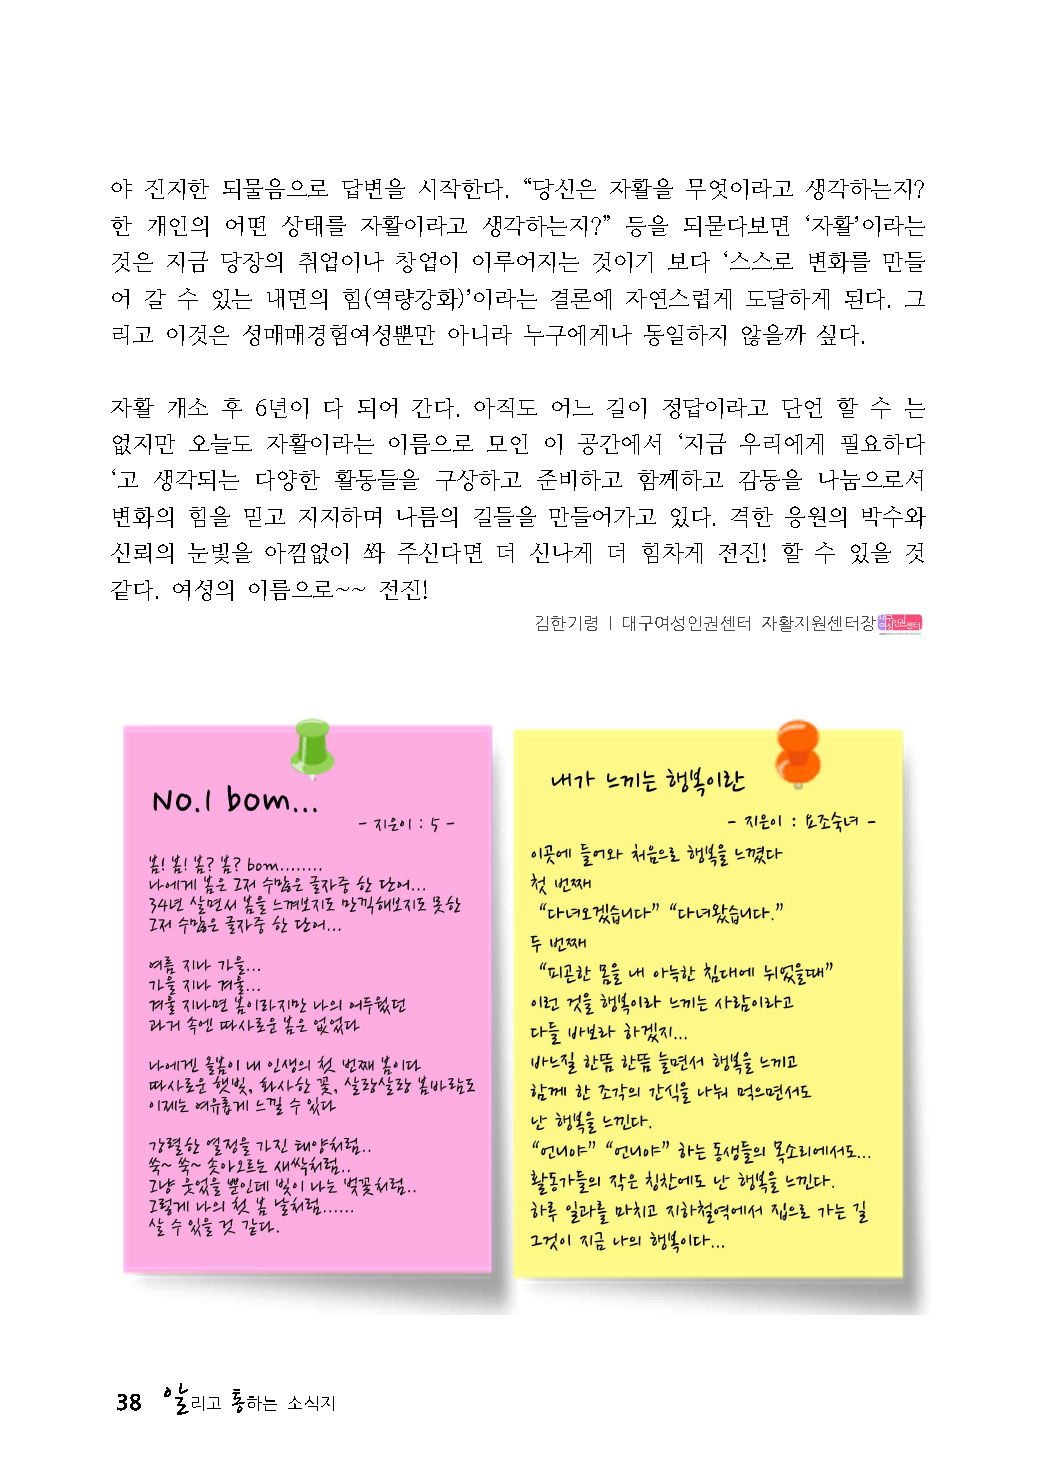 야 진지한 되물음으로 답변을 시작한다. “당신은 자활을 무엇이라고 생각하는지?
한 개인의 어떤 상태를 자활이라고 생각하는지?” 등을 되묻다보면 ‘자활’이라는
것은 지금 당장의 취업이나 창업이 이루어지는 것이기 보다 ‘스스로 변화를 만들
어 갈 수 있는 내면의 힘(역량강화)’이라는 결론에 자연스럽게 도달하게 된다. 그
리고 이것은 성매매경험여성뿐만 아니라 누구에게나 동일하지 않을까 싶다.
자활 개소 후 6년이 다 되어 간다. 아직도 어느 길이 정답이라고 단언 할 수 는
없지만 오늘도 자활이라는 이름으로 모인 이 공간에서 ‘지금 우리에게 필요하다
‘고 생각되는 다양한 활동들을 구상하고 준비하고 함께하고 감동을 나눔으로서
변화의 힘을 믿고 지지하며 나름의 길들을 만들어가고 있다. 격한 응원의 박수와
신뢰의 눈빛을 아낌없이 쏴 주신다면 더 신나게 더 힘차게 전진! 할 수 있을 것
같다. 여성의 이름으로~~ 전진!
김한기령 | 대구여성인권센터 자활지원센터장
No.1 bom...
- 지은이 : 5 -
봄! 봄! 봄? 봄? bom........
나에게 봄은 그저 수많은 글자중 한 단어...
34년 살면서 봄을 느껴보지도 만끽해보지도 못한
그저 수많은 글자중 한 단어...
여름 지나 가을...
가을 지나 겨울...
겨울 지나면 봄이라지만 나의 어두웠던
과거 속엔 따사로운 봄은 없었다
나에겐 올봄이 내 인생의 첫 번째 봄이다
따사로운 햇빛, 화사한 꽃, 살랑살랑 봄바람도
이제는 여유롭게 느낄 수 있다
강렬한 열정을 가진 태양처럼..
쑥~ 쑥~ 솟아오르는 새싹처럼..
그냥 웃었을 뿐인데 빛이 나는 벚꽃처럼..
그렇게 나의 첫 봄 날처럼......
살 수 있을 것 같다.
내가 느끼는 행복이란
- 지은이 : 요조숙녀 -
이곳에 들어와 처음으로 행복을 느꼈다
첫 번째
“다녀오겠습니다” “다녀왔습니다.”
두 번째
“피곤한 몸을 내 아늑한 침대에 뉘었을때”
이런 것을 행복이라 느끼는 사람이라고
다들 바보라 하겠지...
바느질 한뜸 한뜸 늘면서 행복을 느끼고
함께 한 조각의 간식을 나눠 먹으면서도
난 행복을 느낀다.
“언니야” “언니야” 하는 동생들의 목소리에서도...
활동가들의 작은 칭찬에도 난 행복을 느낀다.
하루 일과를 마치고 지하철역에서 집으로 가는 길
그것이 지금 나의 행복이다...
38 알리고 통하는 소식지